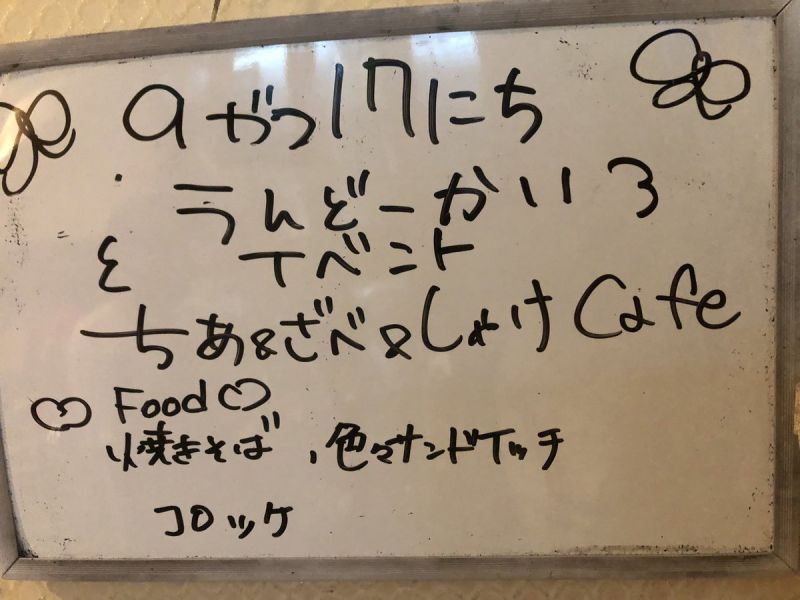 9がつ17にち
うんどーかいい
イベント
ちあ&ざべ&しゃけCafe
Food
焼きそば、色々サンドイッチ
コロッケ